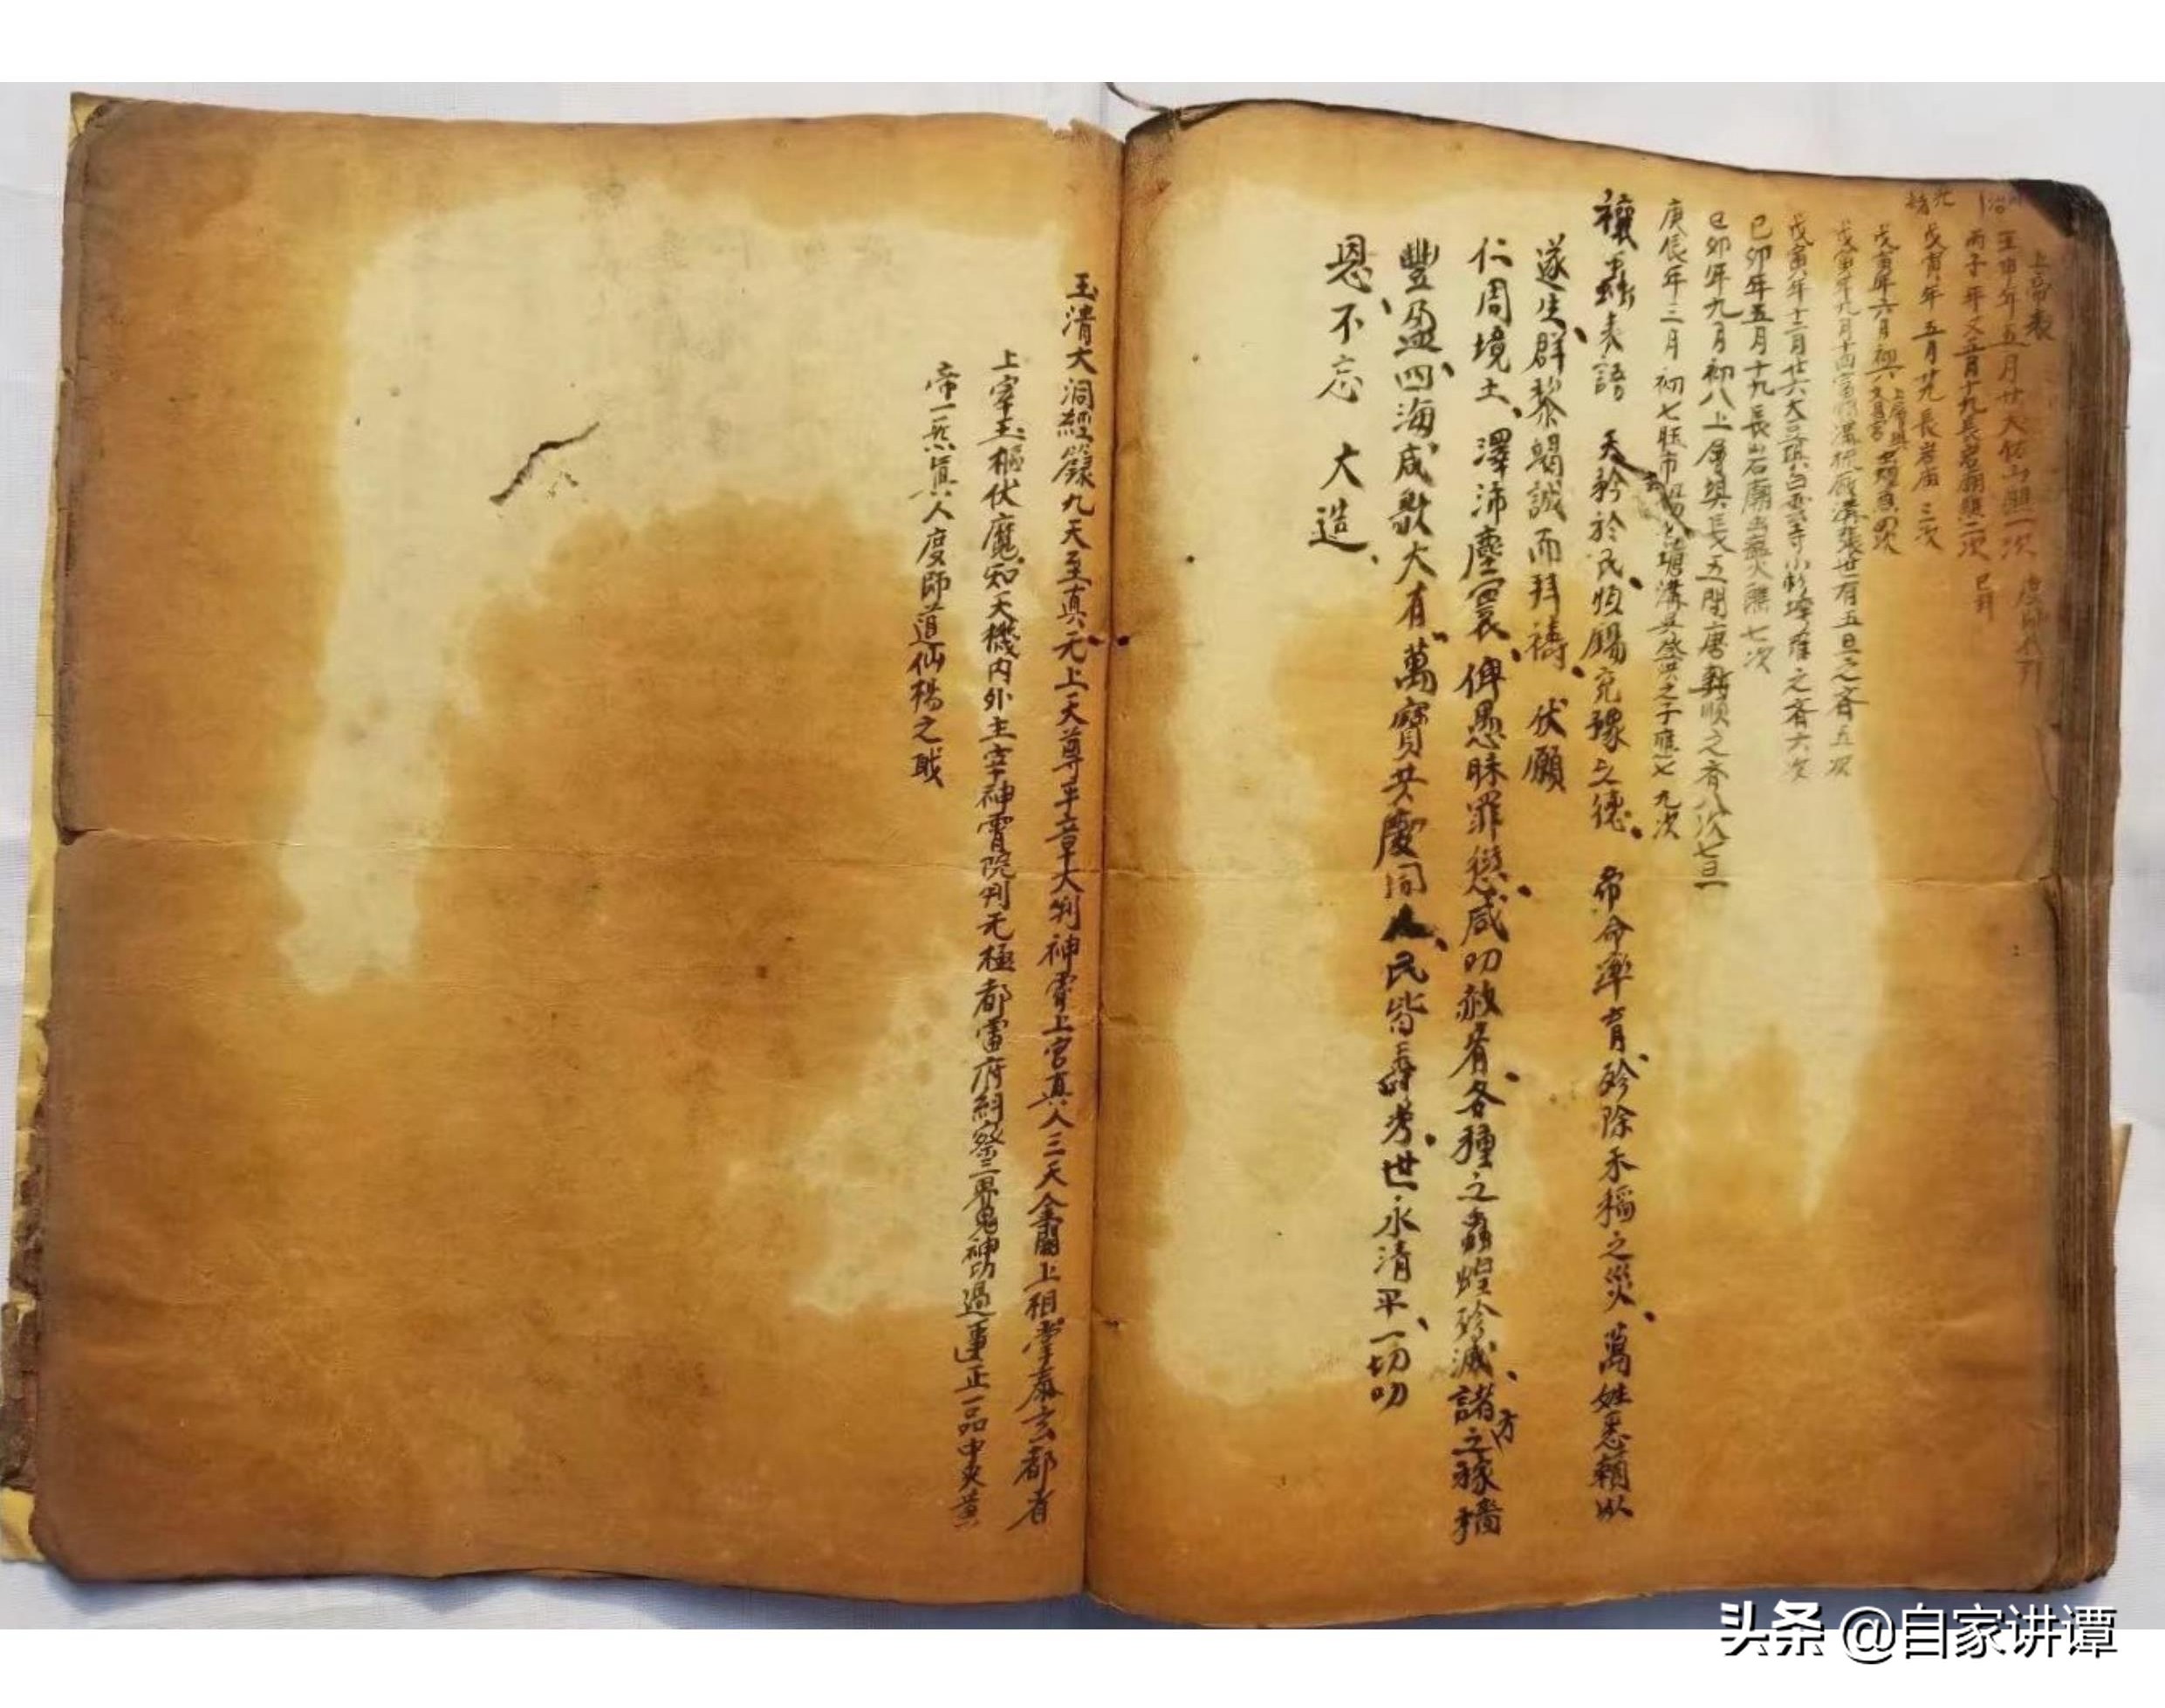 上帝表
同治
壬申年五月廿大佑山醮一次
丙子年又五月十九長岩廟醮二次 己卯
光緒
戊寅年五月廿九長岩庙三次
戊寅年六月初六
戊寅年九月十四 五旦之斉五次
戊寅年十二月廿六 白雲寺小 之斉六次
己卯年五月十九長山石廟 火醮七次
己卯年九月初八上會 長五間唐 順之斉八次七旦
庚辰年三月初七 市 塘溝 之子應七九次
禳蟲表語 天矜於民、恒賜充豫之德、帝命率育、殄除禾稻之災、萬姓悉賴以
遂生、群黎竭誠而拜禱、伏願
仁周境土、澤沛塵寰、俾愚昧罪愆、咸叨赦宥、各種之蟲蝗殄滅、諸方之稼穡
豐盈、四海咸歌大有、萬寶共慶同人、民皆壽考、世永清平、一切叨
恩、不忘 大造、
玉清大洞經籙九天至真元上天尊平章大判神霄上宮真人三天金闕上相掌泰玄都省
上宰玉樞伏魔知天機內外主宰神霄院判无極都雷府糾察三界鬼神功過事正一品中央黃
帝一炁真人度師道仙楊之職
头条 @自家讲谭